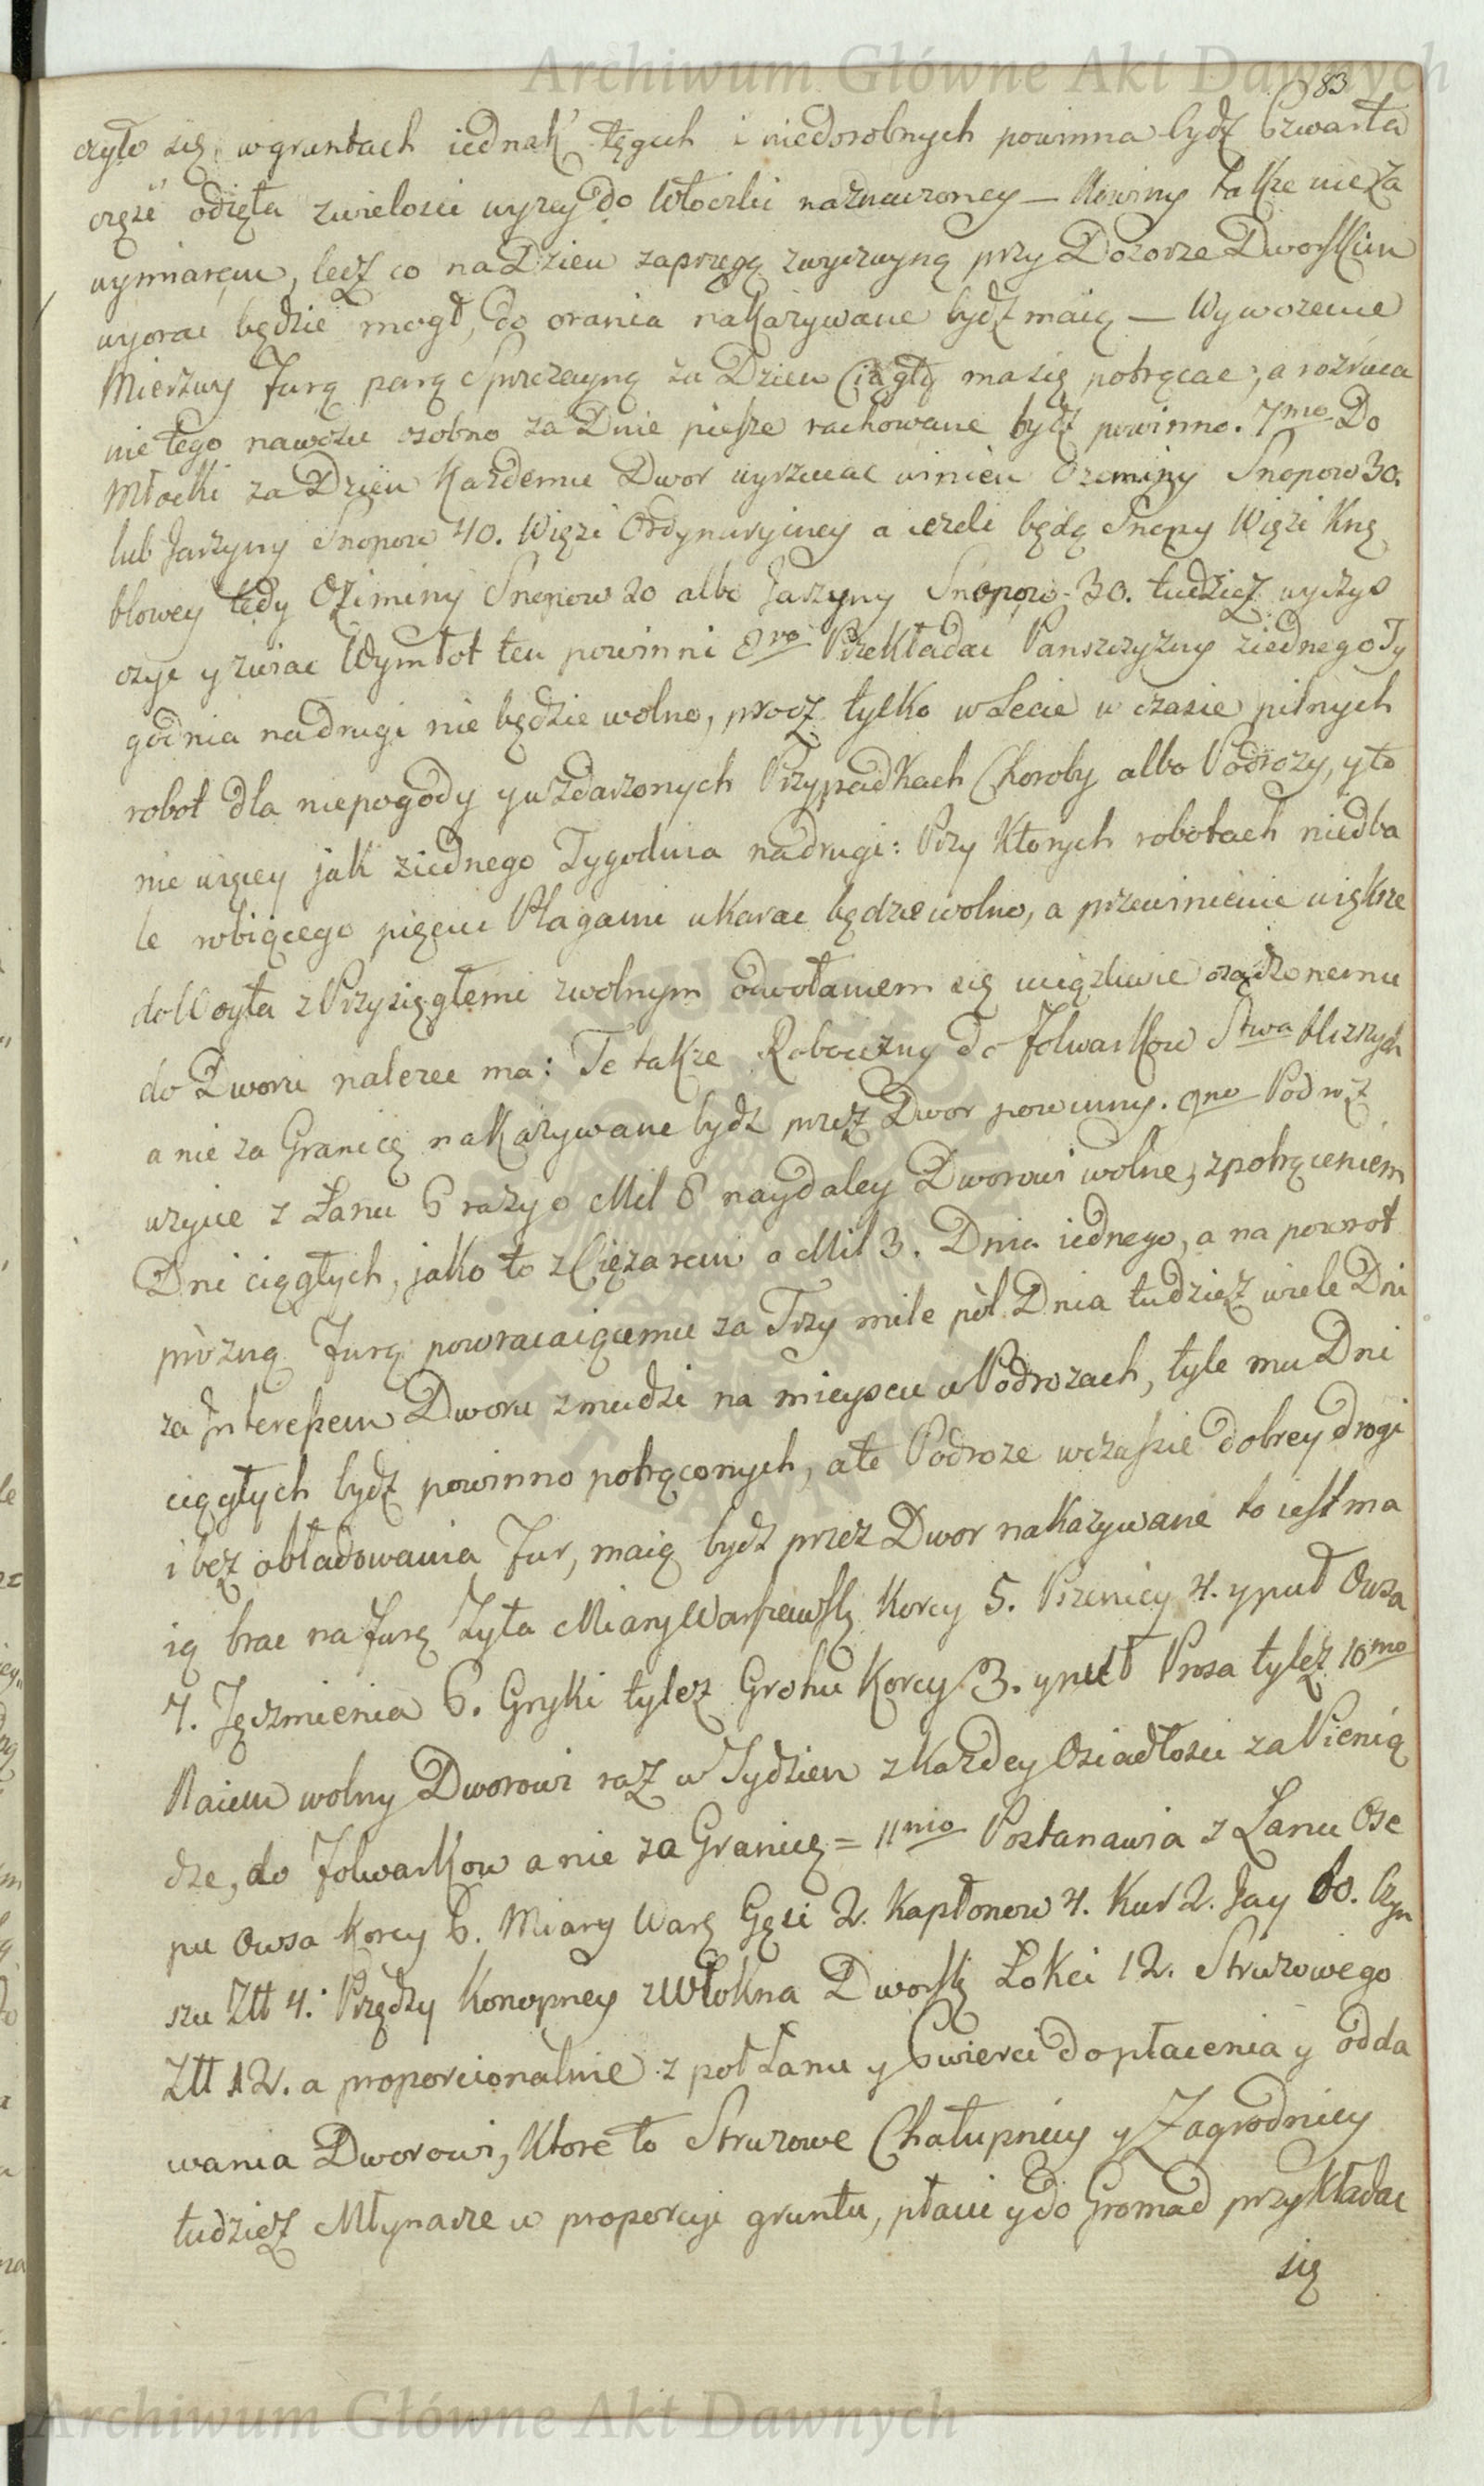 Archiwum Główne Akt Dawnych
83
czyło się, w gruntach iednak tęgich i niedorobnych powinna bydź Czwarta
część odięta z wielości wyzey do Włoczki naznaczoney — Nowiny także nie za
wymiarem, lecz co na Dzien zaprzęgą zwyczayną przy Dozorze Dworskim
wyorac będzie mogł, do orania nakazywane bydź maią — Wywozenie
Mierzwy Furą parą Sprzężayną za Dzien Ciągły ma się potrącac, a rozruca
nie tego nawozu osobno za Dnie piesze rachowane bydź powinno. 7mo Do
Młocki za Dzien Kazdemu Dwor wyrzucac winien Oziminy Snopow 30.
lub Jarzyny Snopow 40. Więzi Ordynaryiney a iezeli będą Snopy Więzi Knę
blowey tedy Oziminy Snopow 20 albo Jarzyny Snopow 30. tudziez wyczys
czyc y zwiac Wymłot ten powinni 8vo Przekładac Panszczyzny ziednego Ty
godnia na drugi nie będzie wolno, procz tylko w Lecie w czasie pilnych
robot dla niepogody y w zdarzonych Przypadkach Choroby albo Podrozy, y to
nie więcey jak ziednego Tygodnia na drugi: Przy Ktorych robotach niedba
le robiącego pięciu Plagami ukarac będzie wolno, a przewinienie większe
do Woyta z Przysięgłemi z wolnym odwołaniem się uciązliwie osądzonemu
do Dworu nalezec ma: Te takze Robocizny do Folwarkow Stwa blizszych
a nie za Granicę nakazywane bydz przez Dwor powinny. 9no Podroz
uzycie z Łanu 6 razy o Mil 8 naydaley Dworowi wolne, z potrąceniem
Dni ciągłych, jako to z Ciężarem o Mil 3. Dnia iednego, a na powrot
prózną Furą powracaiącemu za Trzy mile pół Dnia tudziez wiele Dni
za Interessem Dworu zmudzi na mieyscu w Podrozach, tyle mu Dni
ciągłych bydz powinno potrąconych, ale Podroze w czassie dobrey drogi
i bez obładowania Fur, maią bydz przez Dwor nakazywane to iest ma
ią brac na furę Zyta Miary Warszawsky Korcy 5. Pszenicy 4. y puł Owsa
7. Jęczmienia 6. Gryki tylez Grohu Korcy 3. y puł Prosa tylez 10mo
Naiem wolny Dworowi raz w Tydzien z Kazdey Osiadłosci za Pienią
dze, do Folwarkow a nie za Granicę = 11mo Postanawia z Łanu Ose
pu Owsa Korcy 6. Miary Warę Gęsi 2. Kapłonow 4. Kur 2. Jay 60. Czyn
szu Złł 4. Przędzy Konopney z Włokna Dworsky Łokci 12. Struzowego
Złł 12. a proporcionalnie z poł Łanu y Cwierci do płacenia y odda
wania Dworowi, Ktore to Struzowe Chałupnicy y Zagrodnicy
tudziez Młynarze w proporcyi gruntu, płacic y do Gromad przykładac
się
Archiwum Główne Akt Dawnych